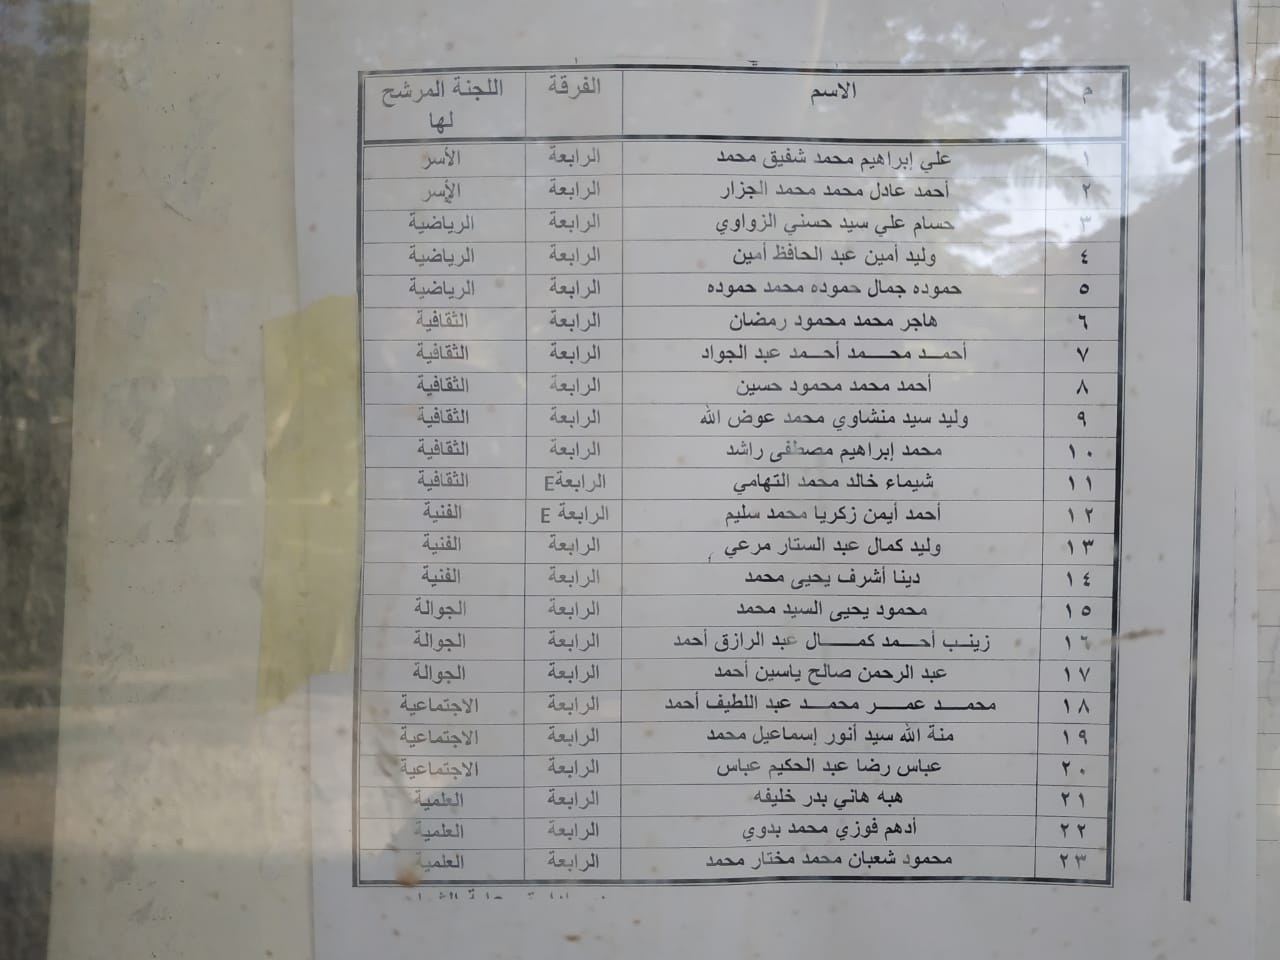 م الاسم الفرقة اللجنة المرشح لها
١ علي إبراهيم محمد شفيق محمد الرابعة الأسر
٢ أحمد عادل محمد محمد الجزار الرابعة الأسر
٣ حسام علي سيد حسني الزواوي الرابعة الرياضية
٤ وليد أمين عبد الحافظ أمين الرابعة الرياضية
٥ حموده جمال حموده محمد حموده الرابعة الرياضية
٦ هاجر محمد محمود رمضان الرابعة الثقافية
٧ أحمـد محـــمد أحـــمد عبد الجواد الرابعة الثقافية
٨ أحمد محمد محمود حسين الرابعة الثقافية
٩ وليد سيد منشاوي محمد عوض الله الرابعة الثقافية
١٠ محمد إبراهيم مصطفى راشد الرابعة الثقافية
١١ شيماء خالد محمد التهامي الرابعةE الثقافية
١٢ أحمد أيمن زكريا محمد سليم الرابعة E الفنية
١٣ وليد كمال عبد الستار مرعي الرابعة الفنية
١٤ دينا أشرف يحيى محمد الرابعة الفنية
١٥ محمود يحيى السيد محمد الرابعة الجوالة
١٦ زينـب أحـــمد كمـــــال عبد الرازق أحمد الرابعة الجوالة
١٧ عبد الرحمن صالح ياسين أحمد الرابعة الجوالة
١٨ محمـــد عمـــر محمـــد عبد اللطيف أحمد الرابعة الاجتماعية
١٩ منة الله سيد أنور إسماعيل محمد الرابعة الاجتماعية
٢٠ عباس رضا عبد الحكيم عباس الرابعة الاجتماعية
٢١ هبه هاني بدر خليفه الرابعة العلمية
٢٢ أدهم فوزي محمد بدوي الرابعة العلمية
٢٣ محمود شعبان محمد مختار محمد الرابعة العلمية